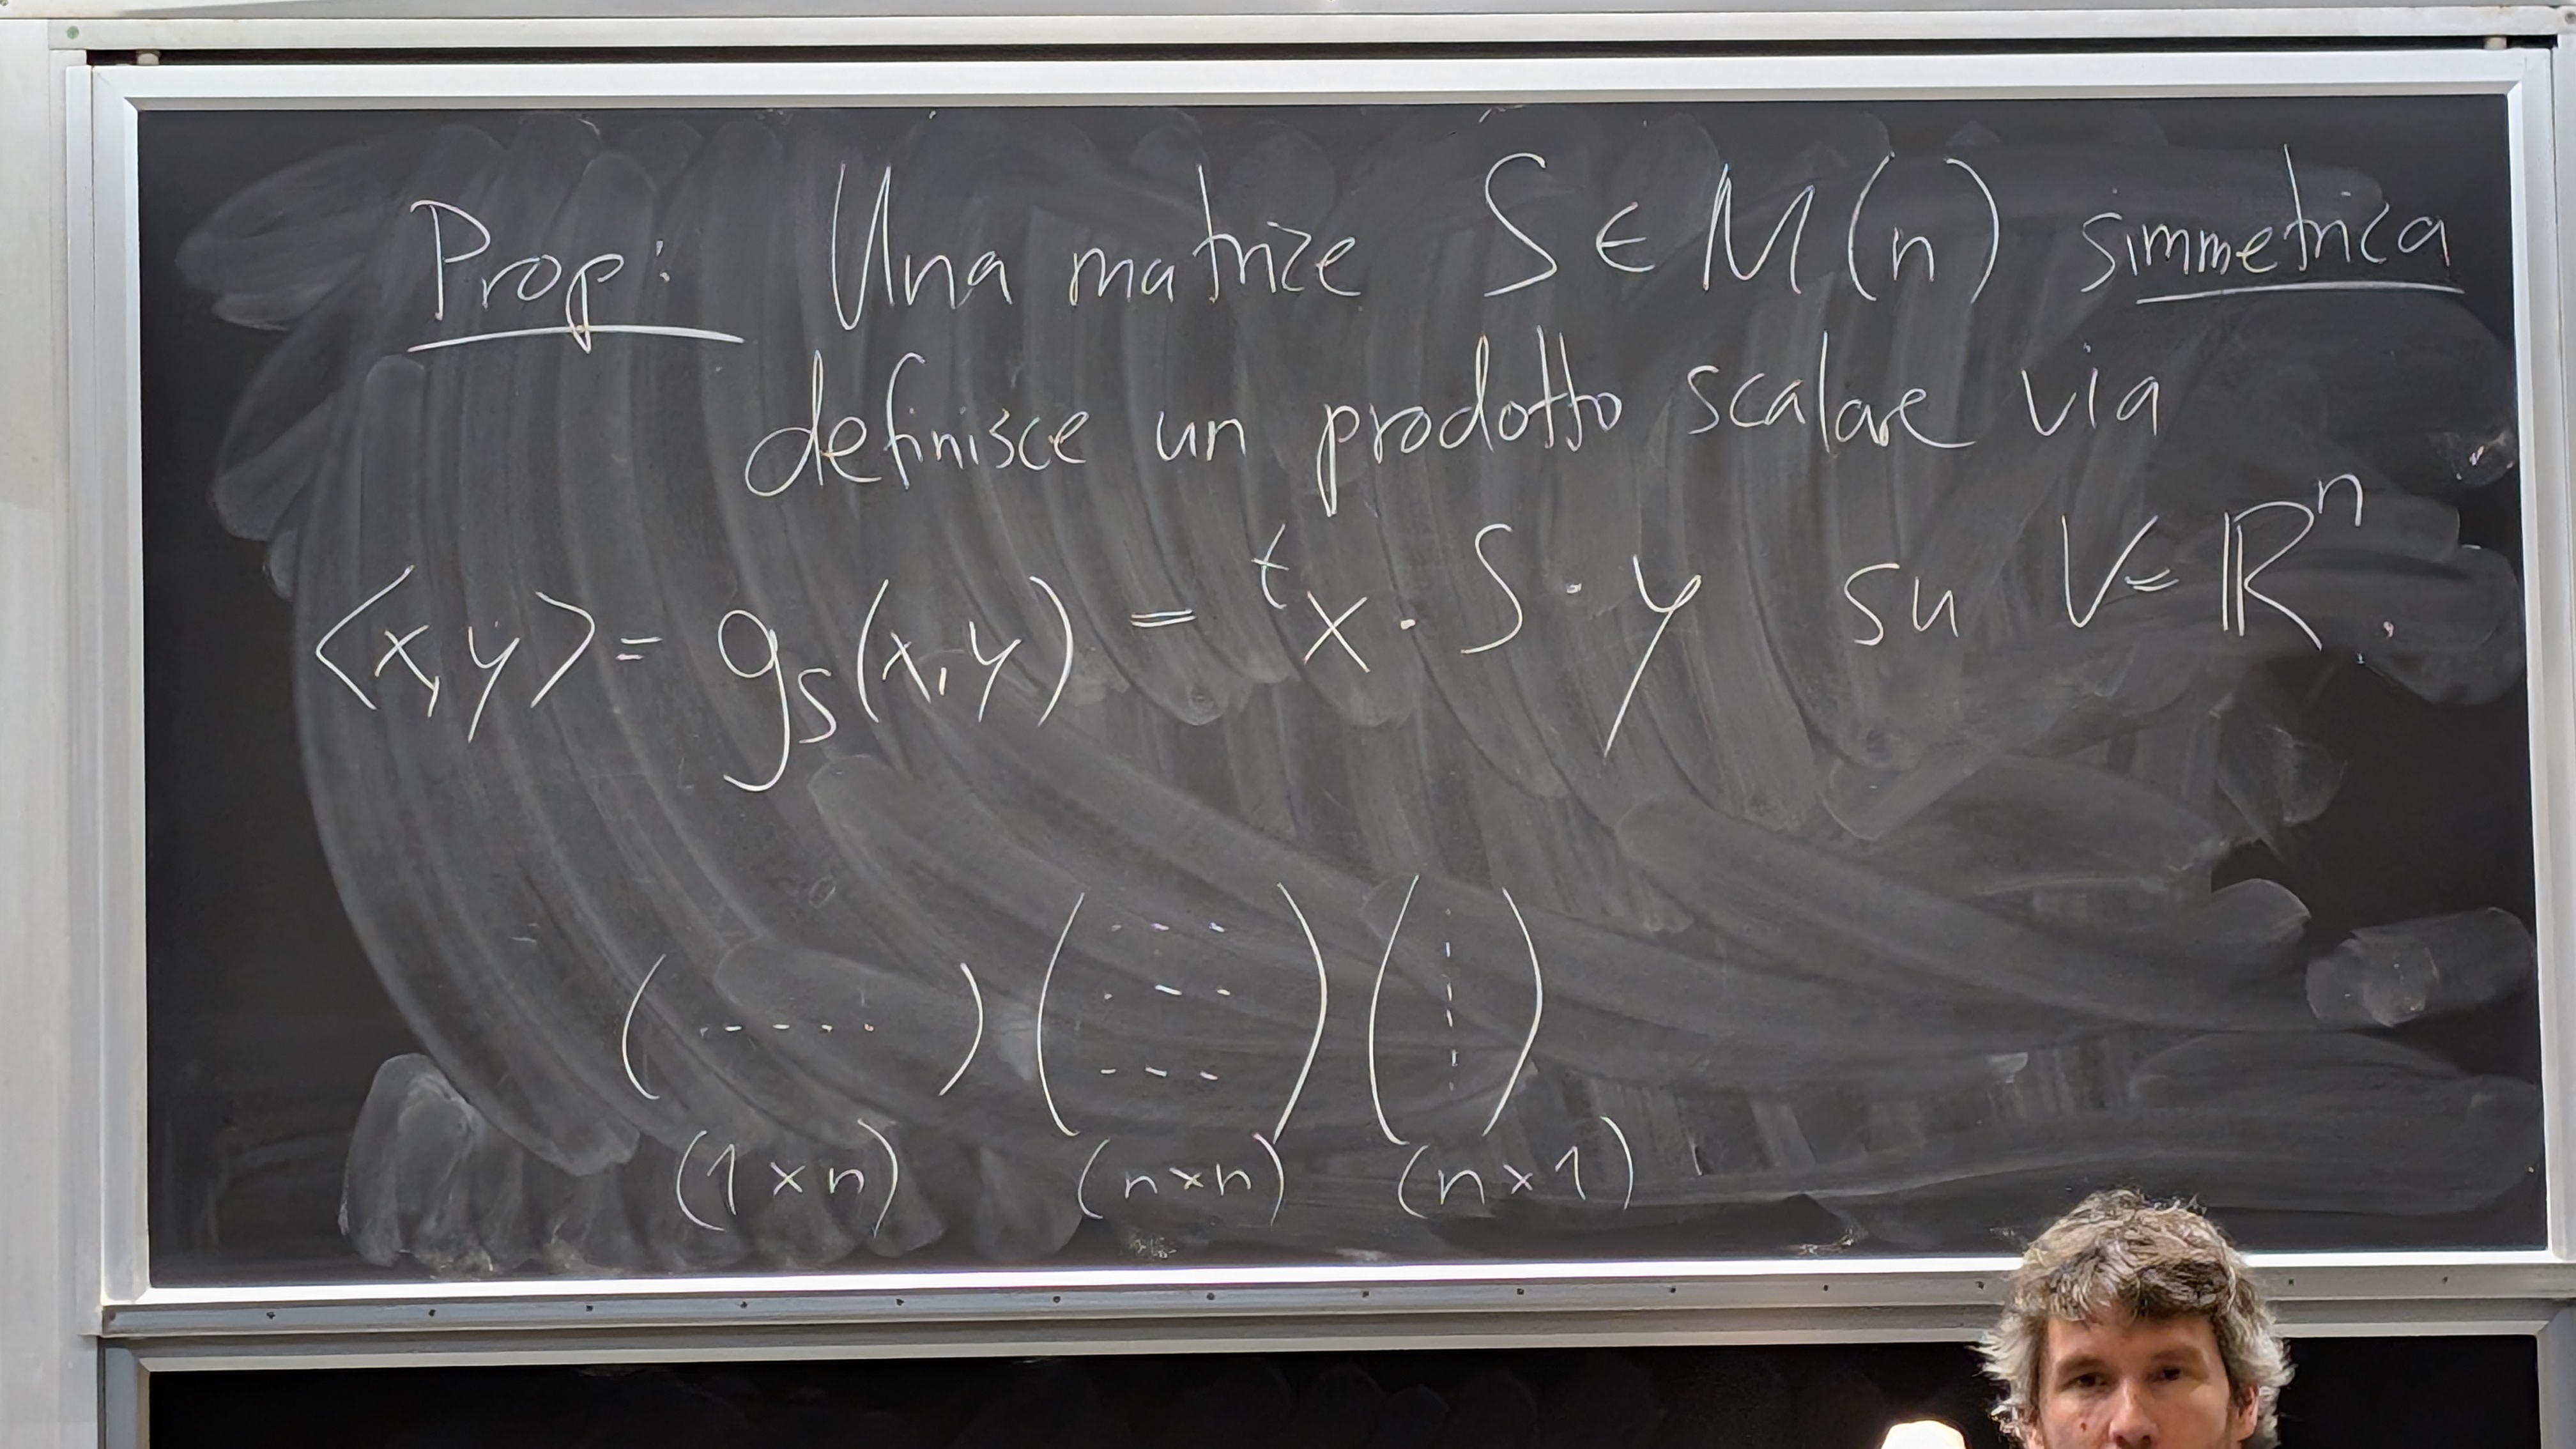 Prop: Una matrize S ∈ M(n) simmetrica
definisce un prodotto scalare via
<x,y> = g_S(x,y) = ᵗx · S · y su V = ℝⁿ.
( - - - - ) ( - - - - - - - - - ) ( ¦ )
(1×n) (n×n) (n×1)